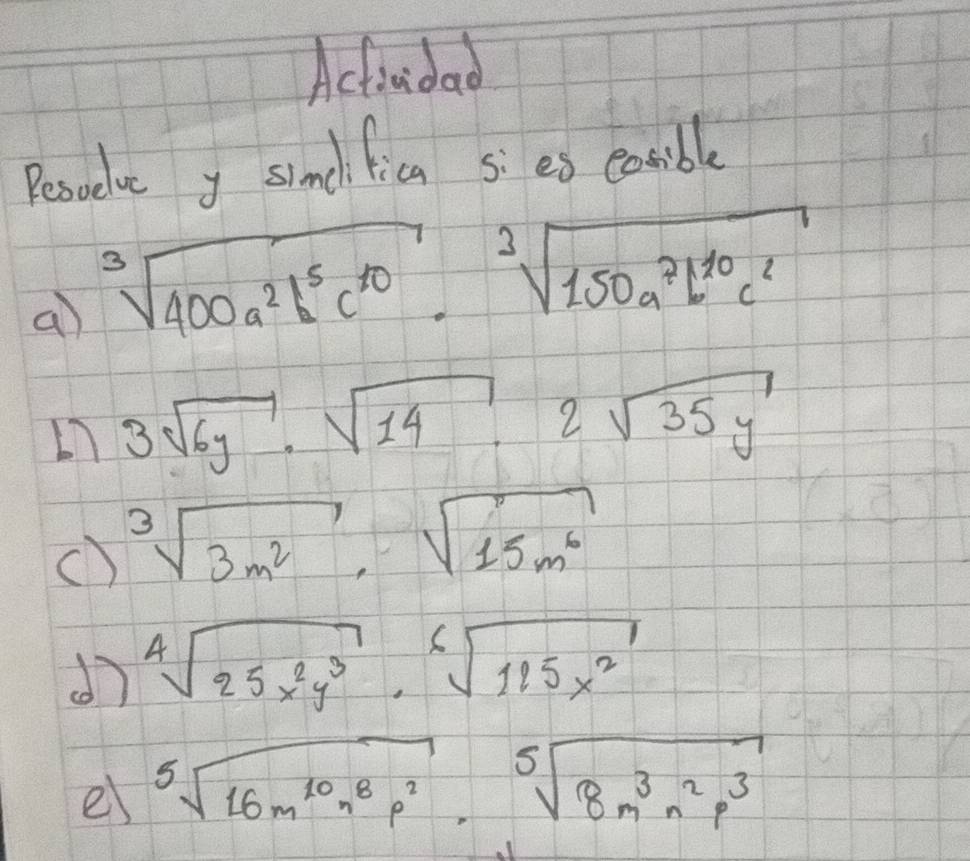 Actividad
Resuelve y simplifica si es posible
a) ∛(400a²b⁵c¹⁰) . ∛(150a⁷b¹⁰c²)
b) 3√(6y) . √14 . 2√(35y)
c) ∛(3m²) . √(15m⁶)
d) ⁴√(25x²y³) . ⁶√(125x²)
e) ⁵√(16m¹⁰n⁸p²) . ⁵√(8m³n²p³)